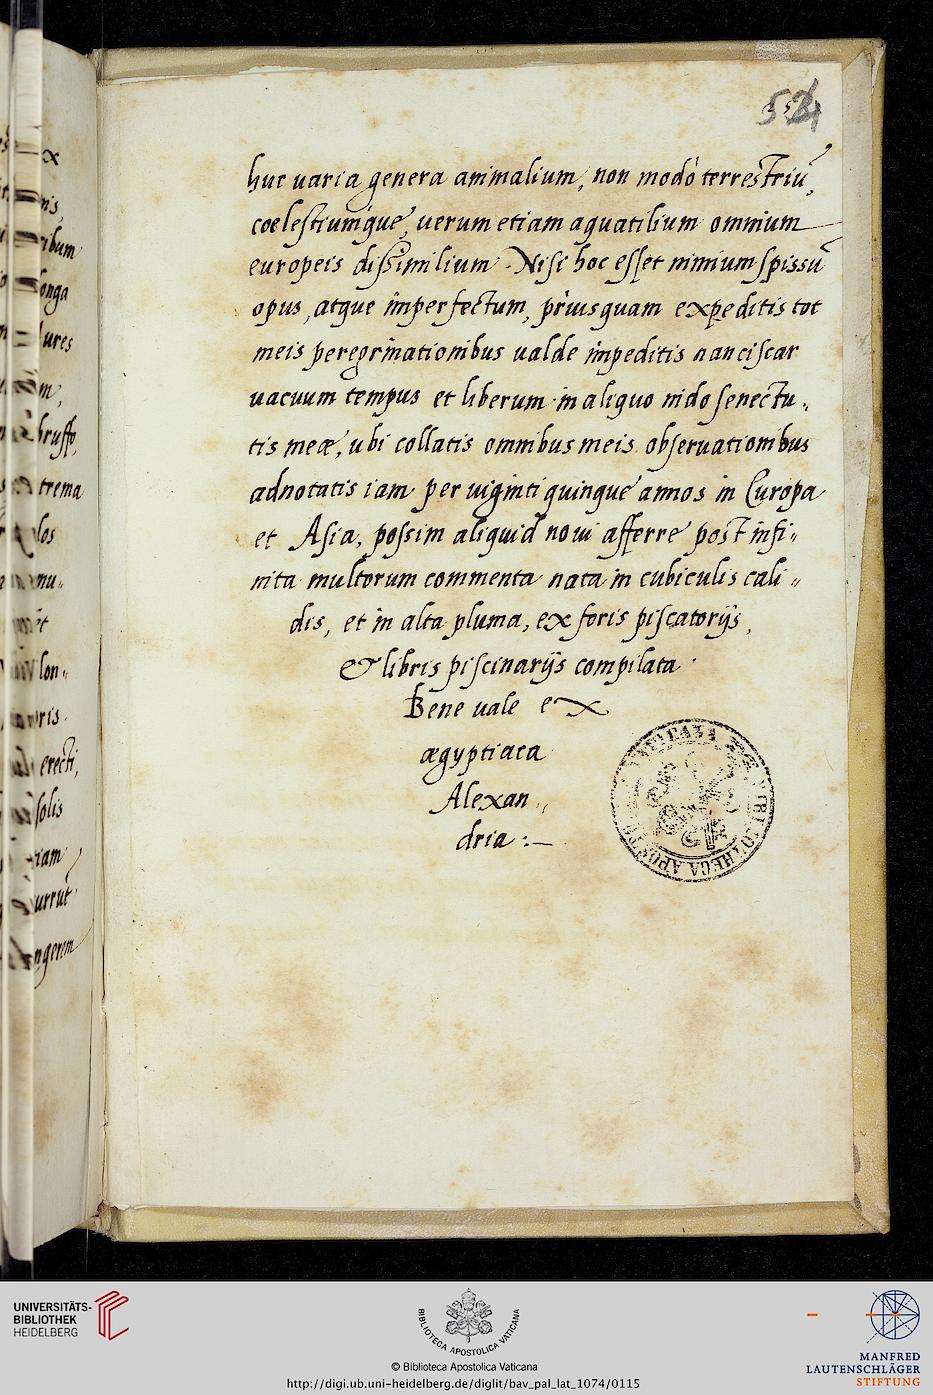 huc uaria genera animalium, non modò terrestriū,
coelestiumque, uerum etiam aquatilium omnium
europeis dissimilium. Nisi hoc esset nimium spissū
opus, atque imperfectum, priusquam expeditis tot
meis peregrinationibus ualde impeditis nanciscar
uacuum tempus et liberum in aliquo nido senectu„
tis meæ, ubi collatis omnibus meis obseruationibus
adnotatis iam per uiginti quinque annos in Europa
et Asia, possim aliquid noui afferre post infi„
nita multorum commenta nata in cubiculis cali„
dis, et in alta pluma, ex foris piscatorijs,
& libris piscinarijs compilata.
Bene uale ex
ægyptiaca
Alexan„
dria :—
x
nis,
ribum
longa
ures
m,
bruffo,
trema
los
mu„
et
lon„
ris.
erecti,
solis
iam
urrūt
ngerem
UNIVERSITÄTS-
BIBLIOTHEK
HEIDELBERG
BIBLIOTECA APOSTOLICA VATICANA
© Biblioteca Apostolica Vaticana
http://digi.ub.uni-heidelberg.de/diglit/bav_pal_lat_1074/0115
MANFRED
LAUTENSCHLÄGER
STIFTUNG